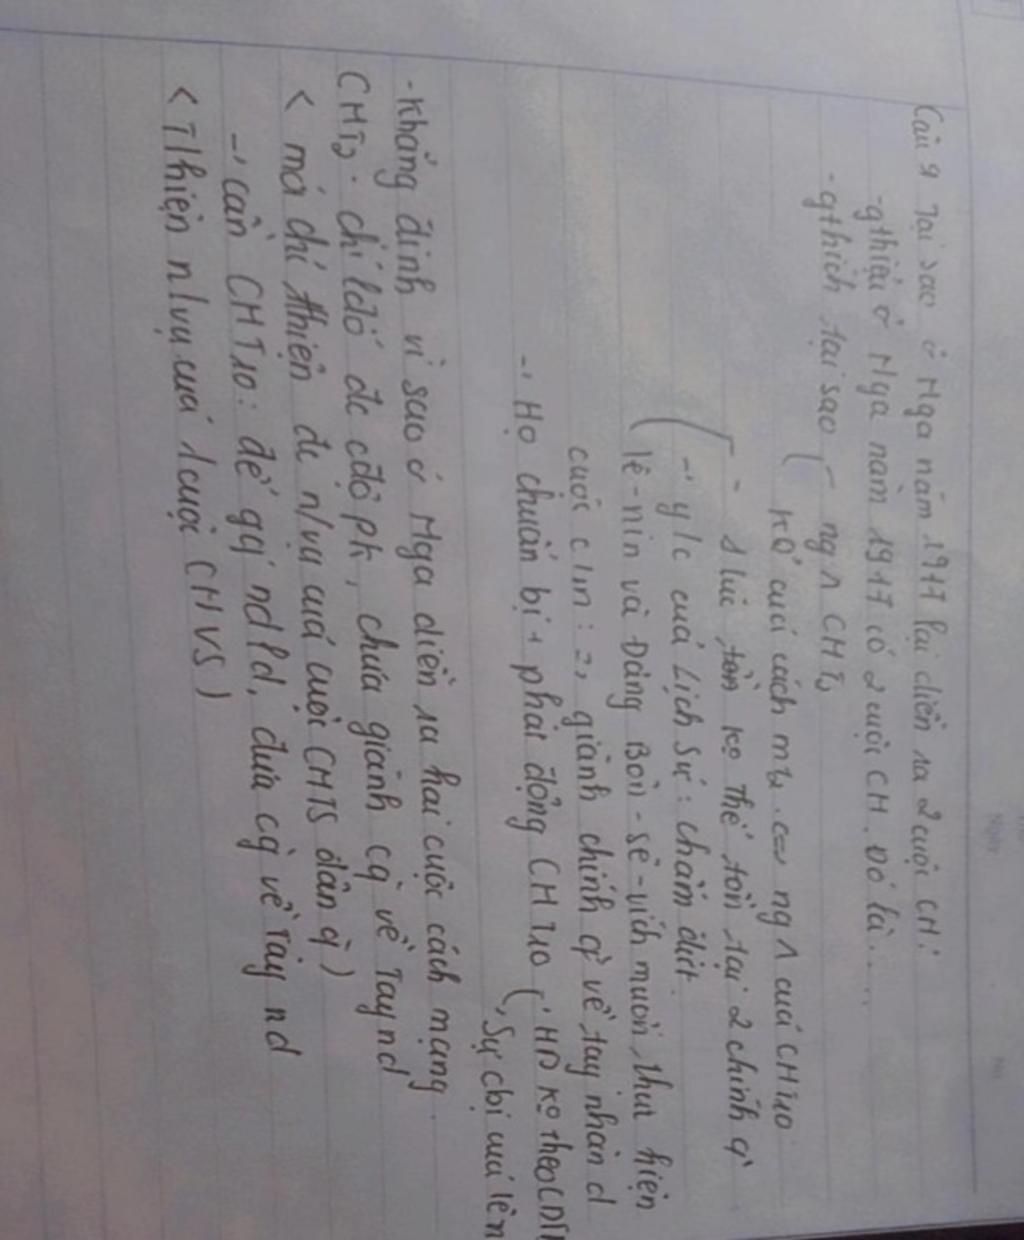 Câu 9 Tại sao ở Nga năm 1917 lại diễn ra 2 cuộc CH:
- gthiệu ở Nga năm 1917 có 2 cuộc CH. Đó là....
- gthích tại sao ng^ CHT2
KQ của cách mt2 <=> ng^ của CHT10
- 1 lúc tồn ko thể tồn tại 2 chính q`
-, y/c của Lịch Sử: chấm dứt.
lê-nin và Đảng Bôn-sê-vích muốn thực hiện
cuộc c lin: =, giành chính q` về tay nhân d
-, Họ chuẩn bị + phát động CHT10 (, HĐ ko theo CĐTS
, Sự cbị của lên
- Khẳng định vì sao ở Nga diễn ra hai cuộc cách mạng.
CHT2: chỉ lđổ đc cđộ pk, chưa giành cq` về tay nd
< mới chỉ thiện đc n/vụ của cuộc CHTS dân q`)
-, cần CHT10: để gq` nd lđ, đưa cq` về tay nd
< T/hiện n/vụ của 1 cuộc CHVS)